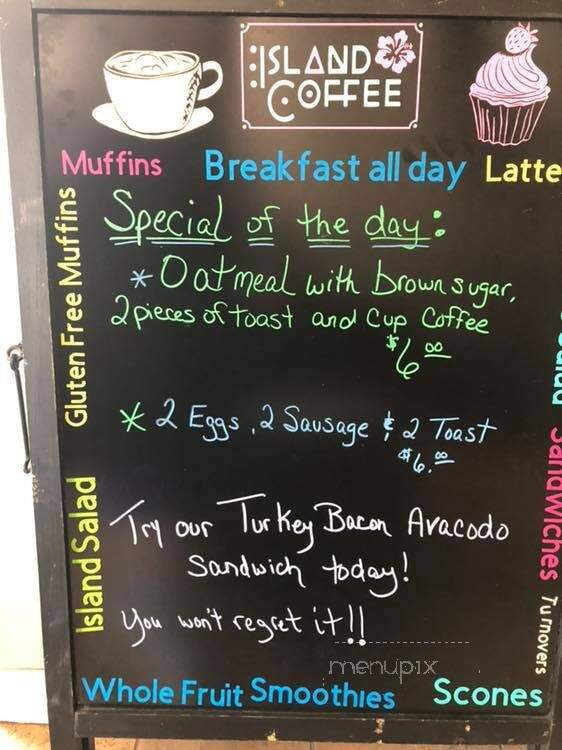 ISLAND
COFFEE
Muffins
Breakfast all day
Latte
Gluten Free Muffins
Island Salad
Special of the day:
* Oatmeal with brown sugar,
2 pieces of toast and Cup Coffee
$6.00
* 2 Eggs, 2 Sausage & 2 Toast
$6.00
Try our Turkey Bacon Avacodo
Sandwich today!
You won't regret it!!
Sandwiches
Turnovers
menupix
Whole Fruit Smoothies
Scones